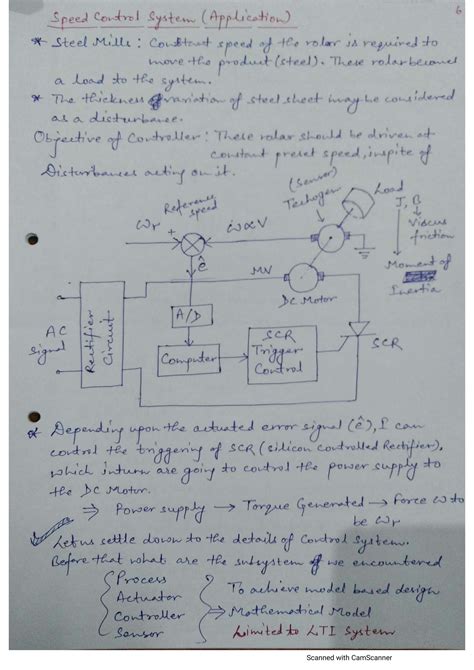 6
Speed Control System (Application)
* Steel Mills : Constant speed of the rolar is required to
move the product (steel). These rolar becomes
a load to the system.
* The thickness variation of steel sheet may be considered
as a disturbance.
Objective of Controller : These rolar should be driven at
constant preset speed, inspite of
Disturbances acting on it.
(Sensor)
Techogen
Load
J, B
Viscus
friction
Moment of
Inertia
Reference
speed
Wr
+
-
ω∝V
ê
MV
DC Motor
A/D
AC
signal
Rectifier
Circuit
Computer
SCR
Trigger
Control
SCR
* Depending upon the actuated error signal (ê), I can
control the triggering of SCR (Silicon Controlled Rectifier),
which inturn are going to control the power supply to
the DC Motor.
⇒ Power supply → Torque Generated → Force W to
be Wr
Let us settle down to the details of Control System.
Before that what are the subsystem we encountered
Process
Actuator
Controller
Sensor
To achieve model based design
⇒ Mathematical Model
Limited to LTI System
Scanned with CamScanner